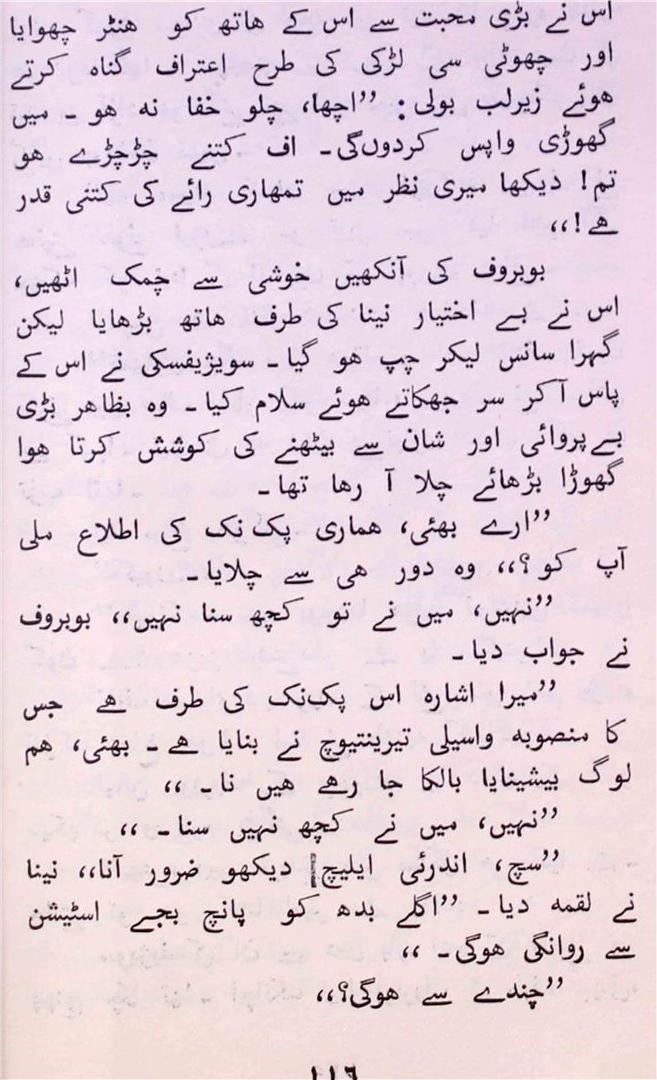 اس نے بڑی محبت سے اس کے ھاتھ کو ھنٹر چھوایا
اور چھوٹی سی لڑکی کی طرح اعتراف گناہ کرتے
ھوئے زیرلب بولی: ”اچھا، چلو خفا نہ ھو ۔ میں
گھوڑی واپس کردوں‌گی ۔ اف کتنے چڑچڑے ھو
تم! دیکھا میری نظر میں تمھاری رائے کی کتنی قدر
ھے!،،
بوبروف کی آنکھیں خوشی سے چمک اٹھیں،
اس نے بے اختیار نینا کی طرف ھاتھ بڑھایا لیکن
گہرا سانس لیکر چپ ھو گیا ۔ سویژیفسکی نے اس کے
پاس آکر سر جھکاتے ھوئے سلام کیا ۔ وہ بظاھر بڑی
بےپروائی اور شان سے بیٹھنے کی کوشش کرتا ھوا
گھوڑا بڑھائے چلا آ رھا تھا ۔
”ارے بھئی، ھماری پک‌نک کی اطلاع ملی
آپ کو؟،، وہ دور ھی سے چلایا ۔
”نہیں، میں نے تو کچھ سنا نہیں،، بوبروف
نے جواب دیا ۔
”میرا اشارہ اس پک‌نک کی طرف ھے جس
کا منصوبہ واسیلی تیرینتیوچ نے بنایا ھے ۔ بھئی، ھم
لوگ بیشینایا بالکا جا رھے ھیں نا ۔ ،،
”نہیں، میں نے کچھ نہیں سنا ۔ ،،
”سچ، اندرئی ایلیچ دیکھو ضرور آنا،، نینا
نے لقمہ دیا ۔ ”اگلے بدھ کو پانچ بجے اسٹیشن
سے روانگی ھوگی ۔ ،،
”چندے سے ھوگی؟،،
۱۱٦